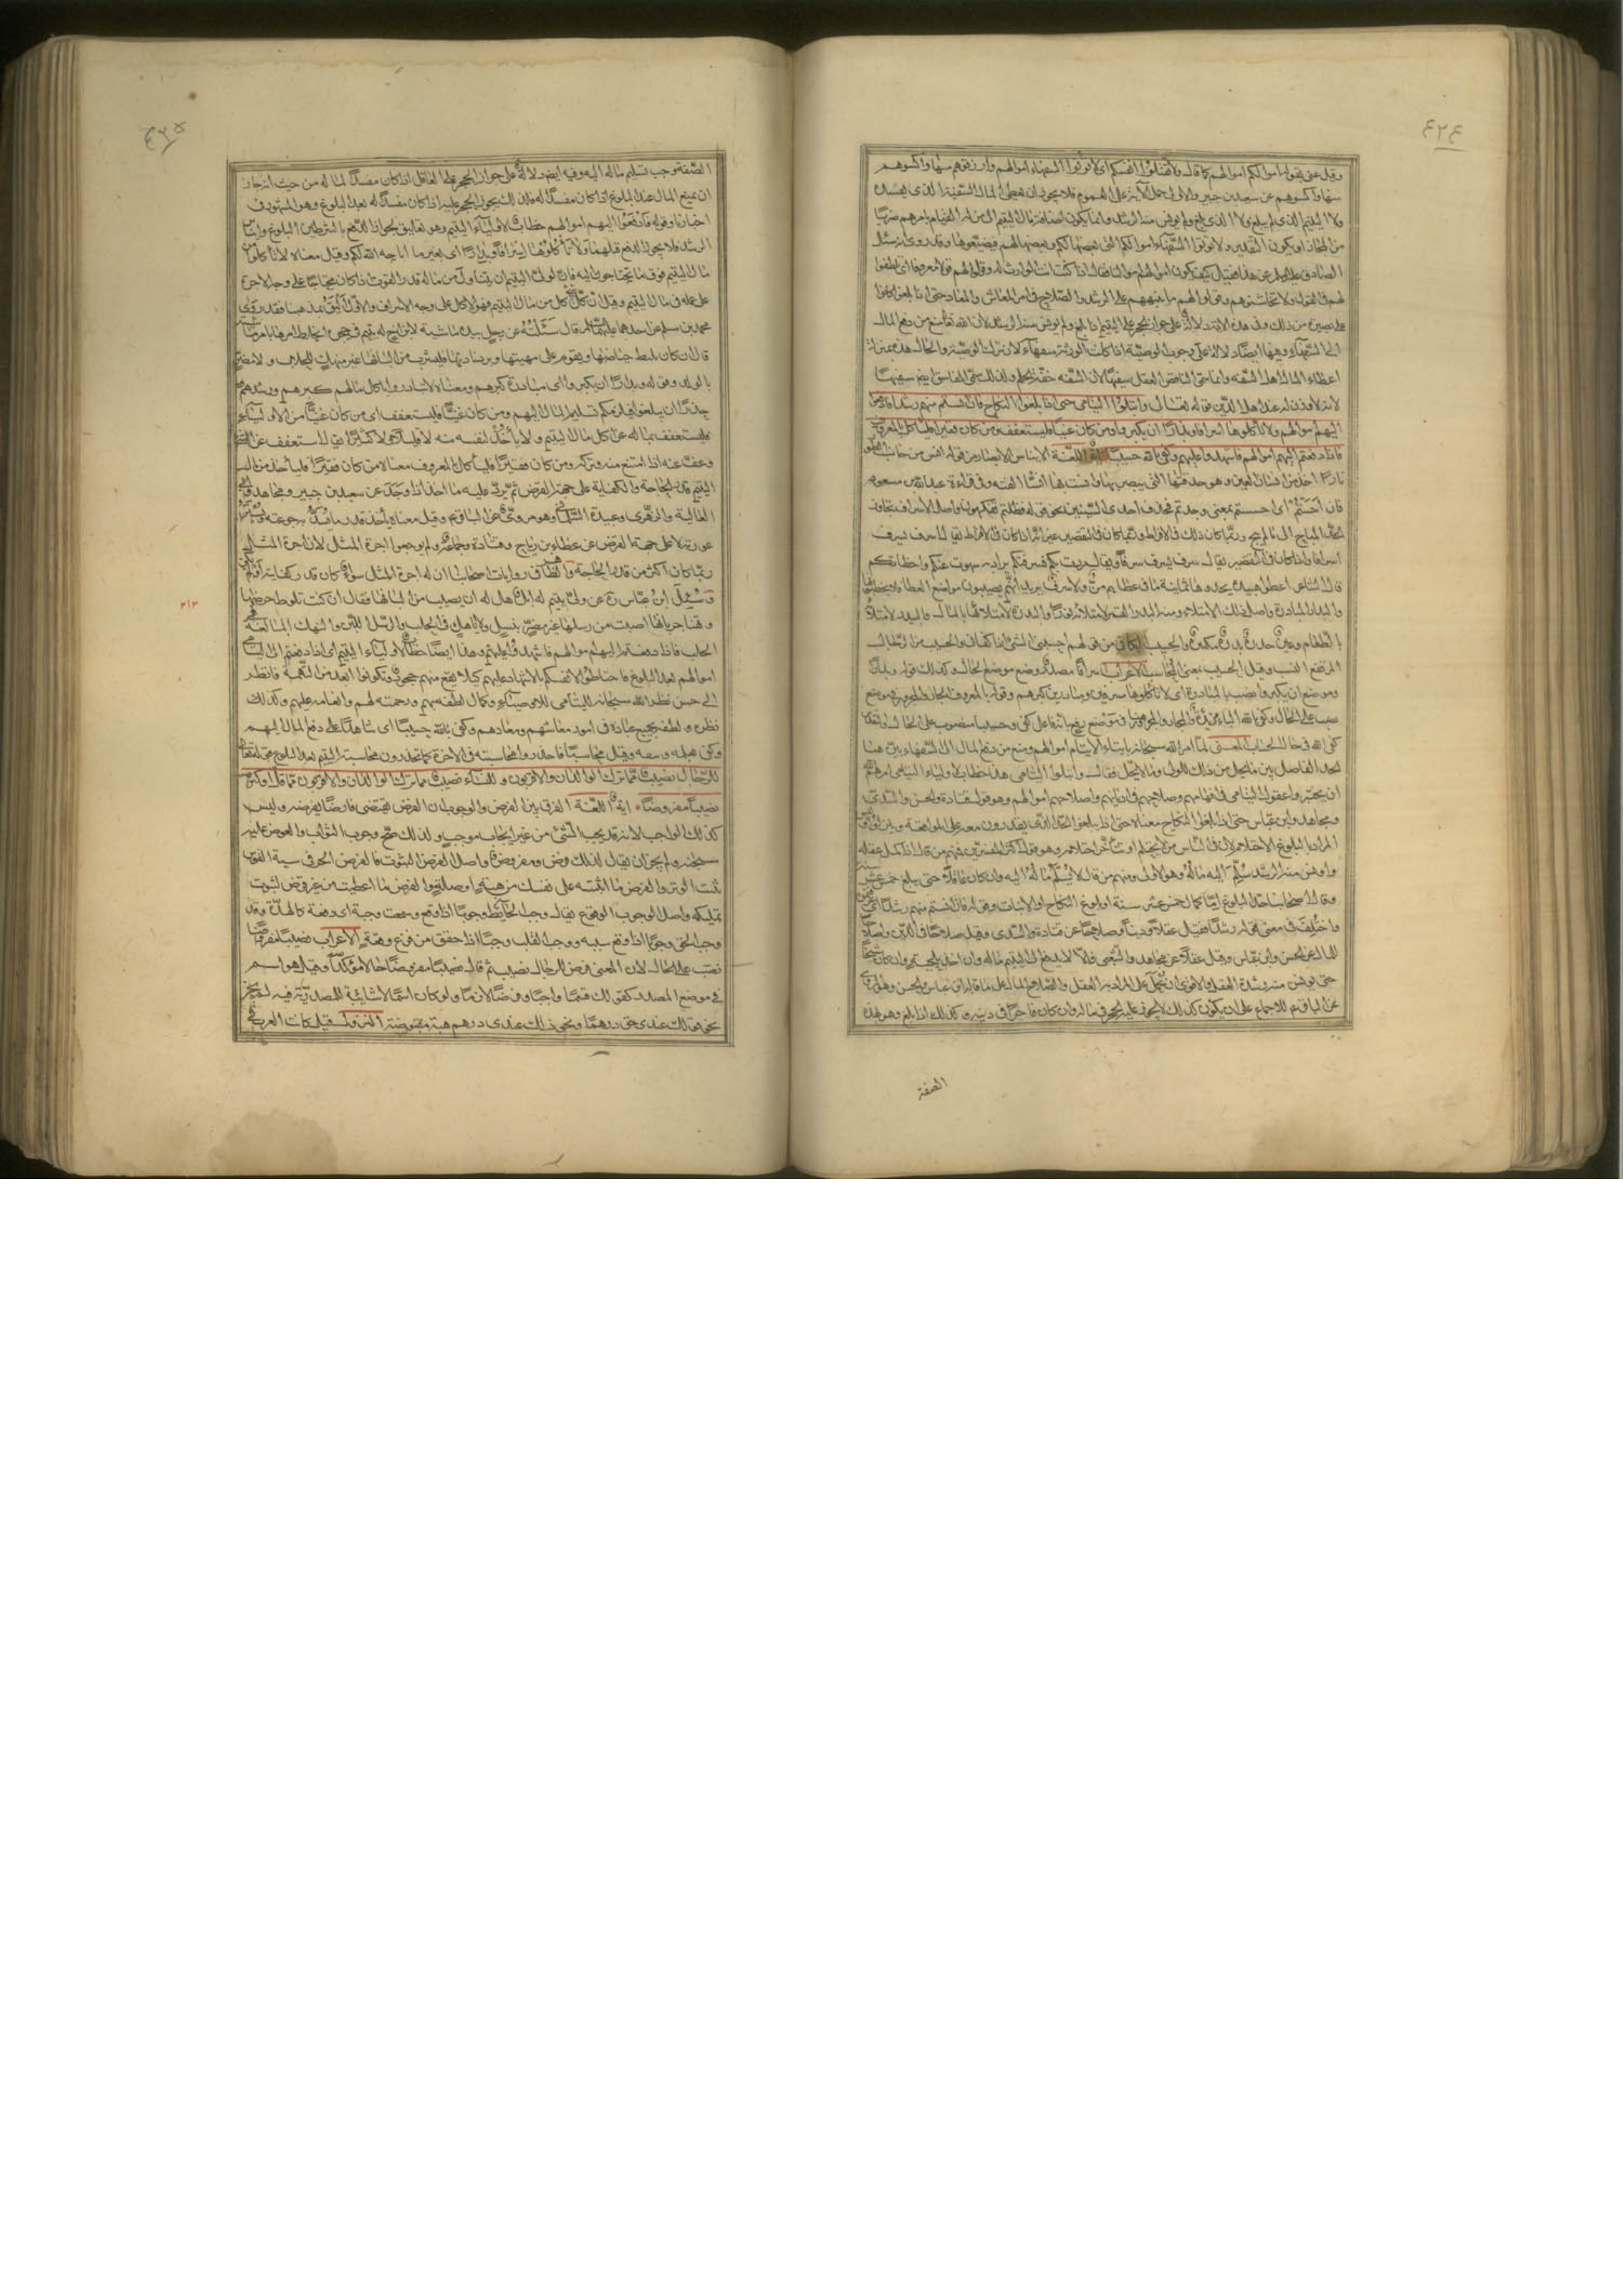 ٤٢٤
وقيل عنى بقوله اموالكم اموالهم كما قال ولا تقتلوا انفسكم اى لا تؤتوا السفهاء اموالهم وارزقوهم فيها واكسوهم
فيها واكسوهم عن سعيد بن جبير والاولى حمل الآية على العموم فلا يجوز ان يعطى المال السفيه الذى يفسده
ولا اليتيم الذى لم يبلغ ولا الذى بلغ ولم يونس منه الرشد وانما يكون اضافة مال اليتيم الى من له القيام بامرهم ضربا
من المجاز او يكون التقدير ولا تؤتوا السفهاء اموالكم التى بعضها لكم وبعضها لهم فيضيعوها وقد روى انه سئل
الصادق عن هذا فقيل كيف يكون اموالهم اموالنا فقال اذا كنت انت الوارث له وقولوا لهم قولا معروفا اى تلطفوا
لهم فى القول ولا تخاشنوهم وقولوا لهم ما ينبههم على الرشد والصلاح فى امر المعاش والمعاد حتى اذا بلغوا كانوا
على بصيرة من ذلك وفى هذه الآية دلالة على جواز الحجر على اليتيم اذا بلغ ولم يونس منه الرشد لان الله تعالى منع من دفع المال
الى السفهاء وفيها ايضا دلالة على وجوب الوصية اذا كانت الورثة سفهاء لان ترك الوصية والحال هذه بمنزلة
اعطاء المال اهل السفه وانما سمى الناقص العقل سفيها لان السفه خفة الحلم ولذلك سمى الفاسق ايضا سفيها
لانه لا وزن له عند اهل الدين قوله تعالى وابتلوا اليتامى حتى اذا بلغوا النكاح فان آنستم منهم رشدا فادفعوا
اليهم اموالهم ولا تأكلوها اسرافا وبدارا ان يكبروا ومن كان غنيا فليستعفف ومن كان فقيرا فليأكل بالمعروف
فاذا دفعتم اليهم اموالهم فاشهدوا عليهم وكفى بالله حسيبا اللغة الايناس الابصار من قوله آنس من جانب الطور
نارا اخذ من انسان العين وهو حدقتها التى يبصر بها وفى قراءة عبد الله بن مسعود
فان احستم اى احسستم بمعنى وجدتم فحذف احدى السينين نحو قوله فظلتم تفكهون واصل الاسراف تجاوز
الحد المباح الى ما لم يبح وربما كان ذلك فى الافراط وربما كان فى التقصير غير انه اذا كان فى الافراط يقال اسرف يسرف
اسرافا واذا كان فى التقصير يقال سرف يسرف سرفا ويقال مررت بكم فسرفتكم يراد به سهوت عنكم واخطأتكم
قال الشاعر اعطوا هنيدة يحدوها ثمانية ما فى عطائهم من ولا سرف يريد انهم يصيبون مواضع العطاء ولا يخطئونها
والبدار المبادرة واصل ذلك الامتلاء ومنه البدر القمر لامتلائه نورا والبدرة لامتلائها بالمال والبيدر لامتلائه
بالطعام وعين حدرة بدرة مكتنزة والحسيب الكافى من قولهم احسبنى الشىء اذا كفانى والحسيب من الرجال
المرتفع النسب وقيل الحسيب بمعنى المحاسب الاعراب اسرافا مصدر وضع موضع الحال وكذلك قوله وبدارا
وموضع ان يكبروا نصب بالمبادرة اى لا تأكلوها مسرفين ومبادرين كبرهم وقوله بالمعروف الجار والمجرور فى موضع
نصب على الحال وكفى بالله الباء مزيدة والجار والمجرور فى موضع رفع بانه فاعل كفى وحسيبا منصوب على الحال والتقدير
كفى الله فى حال الحساب المعنى لما امر الله سبحانه بايتاء الايتام اموالهم ومنع من دفع المال الى السفهاء بين هنا
الحد الفاصل بين ما يحل من ذلك للولى وما لا يحل فقال وابتلوا اليتامى هذا خطاب لاولياء اليتامى امرهم الله
ان يختبروا عقول اليتامى فى افهامهم وصلاحهم فى اديانهم واصلاحهم اموالهم وهو قول قتادة والحسن والسدى
ومجاهد وابن عباس حتى اذا بلغوا النكاح معناه حتى اذا بلغوا الحد الذى يقدرون معه على المواقعة
المراد البلوغ الاحتلام لان فى الناس من لا يحتلم او يتأخر احتلامه وهو قول اكثر المفسرين فمنهم من قال اذا كمل عقله
واونس منه الرشد سلم اليه ماله وهو الاقوى ومنهم من قال لا يسلم ماله اليه وان كان عاقلا حتى يبلغ خمس عشرة سنة
وقال اصحابنا حد البلوغ اما كمال خمس عشر سنة او بلوغ النكاح او الانبات وقوله فان آنستم منهم رشدا
واختلف فى معنى قوله رشدا فقيل عقلا ودينا وصلاحا عن قتادة والسدى وقيل صلاحا فى الدين واصلاحا
للمال عن الحسن وابن عباس وقيل عقلا عن مجاهد والشعبى قالا لا يدفع الى اليتيم ماله وان اخذ بلحيته وان كان شيخا
حتى يونس منه رشده العقل والاقوى ان يحمل على المراد به العقل واصلاح المال على ما قاله ابن عباس والحسن وهو المروى
عن الباقر للاجماع على ان من يكون كذلك لا يجوز عليه الحجر فى ماله وان كان فاجرا فى دينه وكذلك اذا بلغ وهو بهذه
الصفة
٤٢٥
الصفة وجب تسليم ماله اليه وفيه ايضا دلالة على جواز الحجر على العاقل اذا كان مفسدا لماله من حيث انه جاز
ان يمنع المال عند البلوغ اذا كان مفسدا له فكذلك يجوز الحجر عليه اذا كان مفسدا له بعد البلوغ وهو المشهور فى
اخبارنا وقوله فادفعوا اليهم اموالهم خطاب لاولياء اليتيم وهو تعليق لجواز الدفع بالشرطين البلوغ وايناس
الرشد فلا يجوز الدفع قبلهما ولا تأكلوها اسرافا وبدارا اى بغير ما اباحه الله لكم وقيل معناه لا تأكلوا من
مال اليتيم فوق ما تحتاجون اليه فان لولى اليتيم ان يتناول من ماله قدر القوت اذا كان محتاجا على وجه الاجرة
على عمله فى مال اليتيم وقيل ان كل شىء اكل من مال اليتيم فهو الاكل على وجه الاسراف والاول اليق بمذهبنا فقد روى
محمد بن مسلم عن احدهما عليهما السلام قال سئلته عن رجل بيده ماشية لابن اخ له يتيم فى حجره ايخلط امرها بامر ماشيته
قال ان كان يليط حياضها ويقوم على مهنتها ويرد نادتها فليشرب من البانها غير منهك للحلاب ولا مضر
بالولد وقوله وبدارا ان يكبروا اى مبادرة كبرهم ومعناه لا تبادروا باكل مالهم كبرهم ورشدهم
حذرا ان يبلغوا فيلزمكم تسليم المال اليهم ومن كان غنيا فليستعفف اى من كان غنيا من الاولياء
فليستعفف بماله عن اكل مال اليتيم ولا يأخذ لنفسه منه لا قليلا ولا كثيرا يقال استعفف عن الشىء
وعف عنه اذا امتنع منه وتركه ومن كان فقيرا فليأكل بالمعروف معناه من كان فقيرا فليأخذ من مال
اليتيم قدر الحاجة والكفاية على جهة القرض ثم يرد عليه ما اخذ اذا وجد عن سعيد بن جبير ومجاهد وابى
العالية والزهرى وعبيدة السلمانى وهو مروى عن الباقر وقيل معناه يأخذ قدر ما يسد جوعته ويستر
عورته لا على جهة القرض عن عطاء بن ابى رباح وقتادة وجماعة ولم يوجبوا اجرة المثل لان اجرة المثل
ربما كان اكثر من قدر الحاجة والظاهر فى روايات اصحابنا ان له اجرة المثل سواء كان قدر كفايته او لم يكن
وسئل ابن عباس عن ولى يتيم له ابل هل له ان يصيب من البانها فقال ان كنت تلوط حوضها
وتهنأ جرباها اصبت من رسلها غير مضر بنسل ولا ناهك فى الحلب والرسل اللبن والنهك المبالغة فى
الحلب فاذا دفعتم اليهم اموالهم فاشهدوا عليهم وهذا ايضا خطاب لاولياء اليتيم اى اذا دفعتم الى اليتامى
اموالهم بعد البلوغ فاحتاطوا لانفسكم بالاشهاد عليهم كيلا يقع منهم جحود وتكونوا ابعد من التهمة فانظر
الى حسن نظر الله سبحانه لليتامى وللاوصياء وكمال لطفه بهم ورحمته لهم وانعامه عليهم وكذلك
نظره ولطفه بجميع عباده فى امور معاشهم ومعادهم وكفى بالله حسيبا اى شاهدا على دفع المال اليهم
وكفى بعلمه وثيقة وقيل محاسبا فاحذروا محاسبته فى الآخرة كما تحذرون محاسبة اليتيم بعد البلوغ قوله تعالى
للرجال نصيب مما ترك الوالدان والاقربون وللنساء نصيب مما ترك الوالدان والاقربون مما قل او كثر
نصيبا مفروضا آية اللغة الفرق بين الفرض والوجوب ان الفرض يقتضى فارضا يفرضه وليس
كذلك الواجب لانه قد يجب الشىء من غير ايجاب موجب ولذلك صح وجوب الثواب والعوض عليه
سبحانه ولم يجز ان يقال لذلك فرض ومفروض واصل الفرض الثبوت فالفرض الحز فى سية القوس
يثبت الوتر والفرض ما اثبته على نفسك من هبة او صلة والفرض ما اعطيت من غير قرض لثبوت
تمليكه واصل الوجوب الوقوع يقال وجب الحائط وجوبا اذا وقع وسمعت وجبة اى وقعة كالهدة وقد
وجب الحق وجوبا اذا وقع سببه ووجب القلب وجيبا اذا خفق من فزع وقعته الاعراب نصيبا مفروضا
نصب على الحال لان المعنى فرض للرجال نصيب ثم قال نصيبا مفروضا حالا مؤكدا وقيل هو اسم
فى موضع المصدر كقولك قسما واجبا وفرضا لازما ولو كان اسما لا شائبة للمصدرية فيه لم يجز
نحو قولك عندى حق درهما ويجوز لك عندى درهم هبة مقبوضة النزول قيل كانت العرب فى